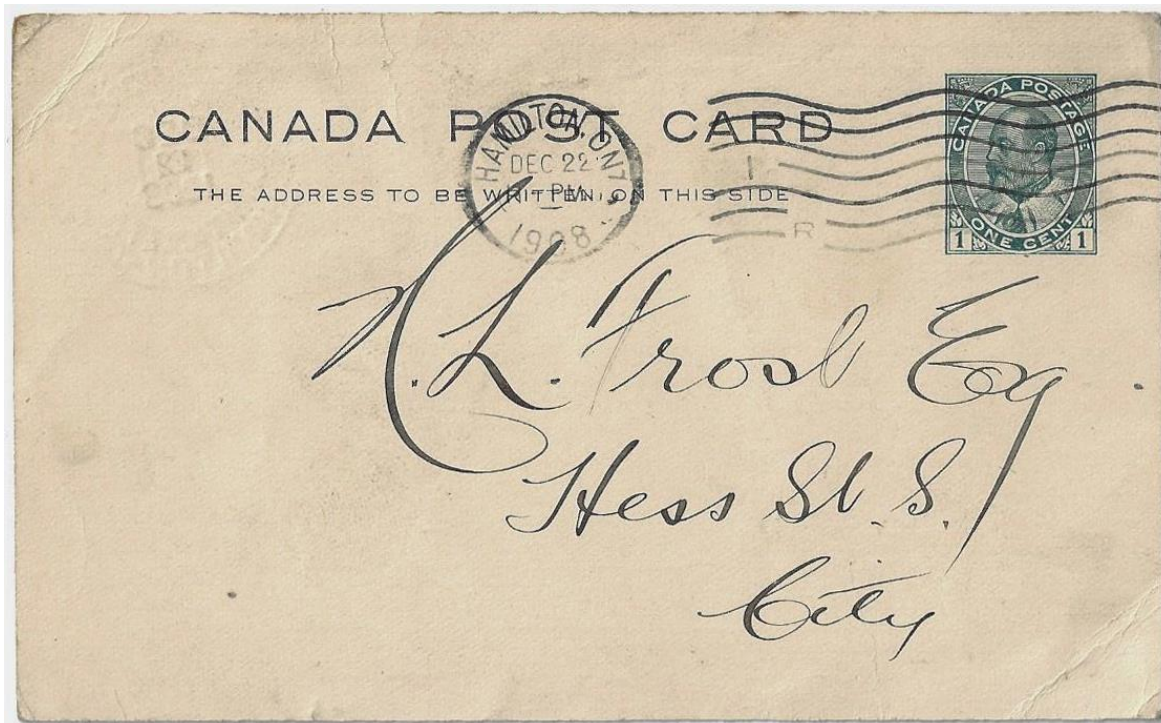 CANADA POST CARD
THE ADDRESS TO BE WRITTEN ON THIS SIDE
HAMILTON, ONT.
DEC 22
PM
1908
R
CANADA POSTAGE
ONE CENT
1 1
N. L. Frost Esq.
Hess St. S.
City